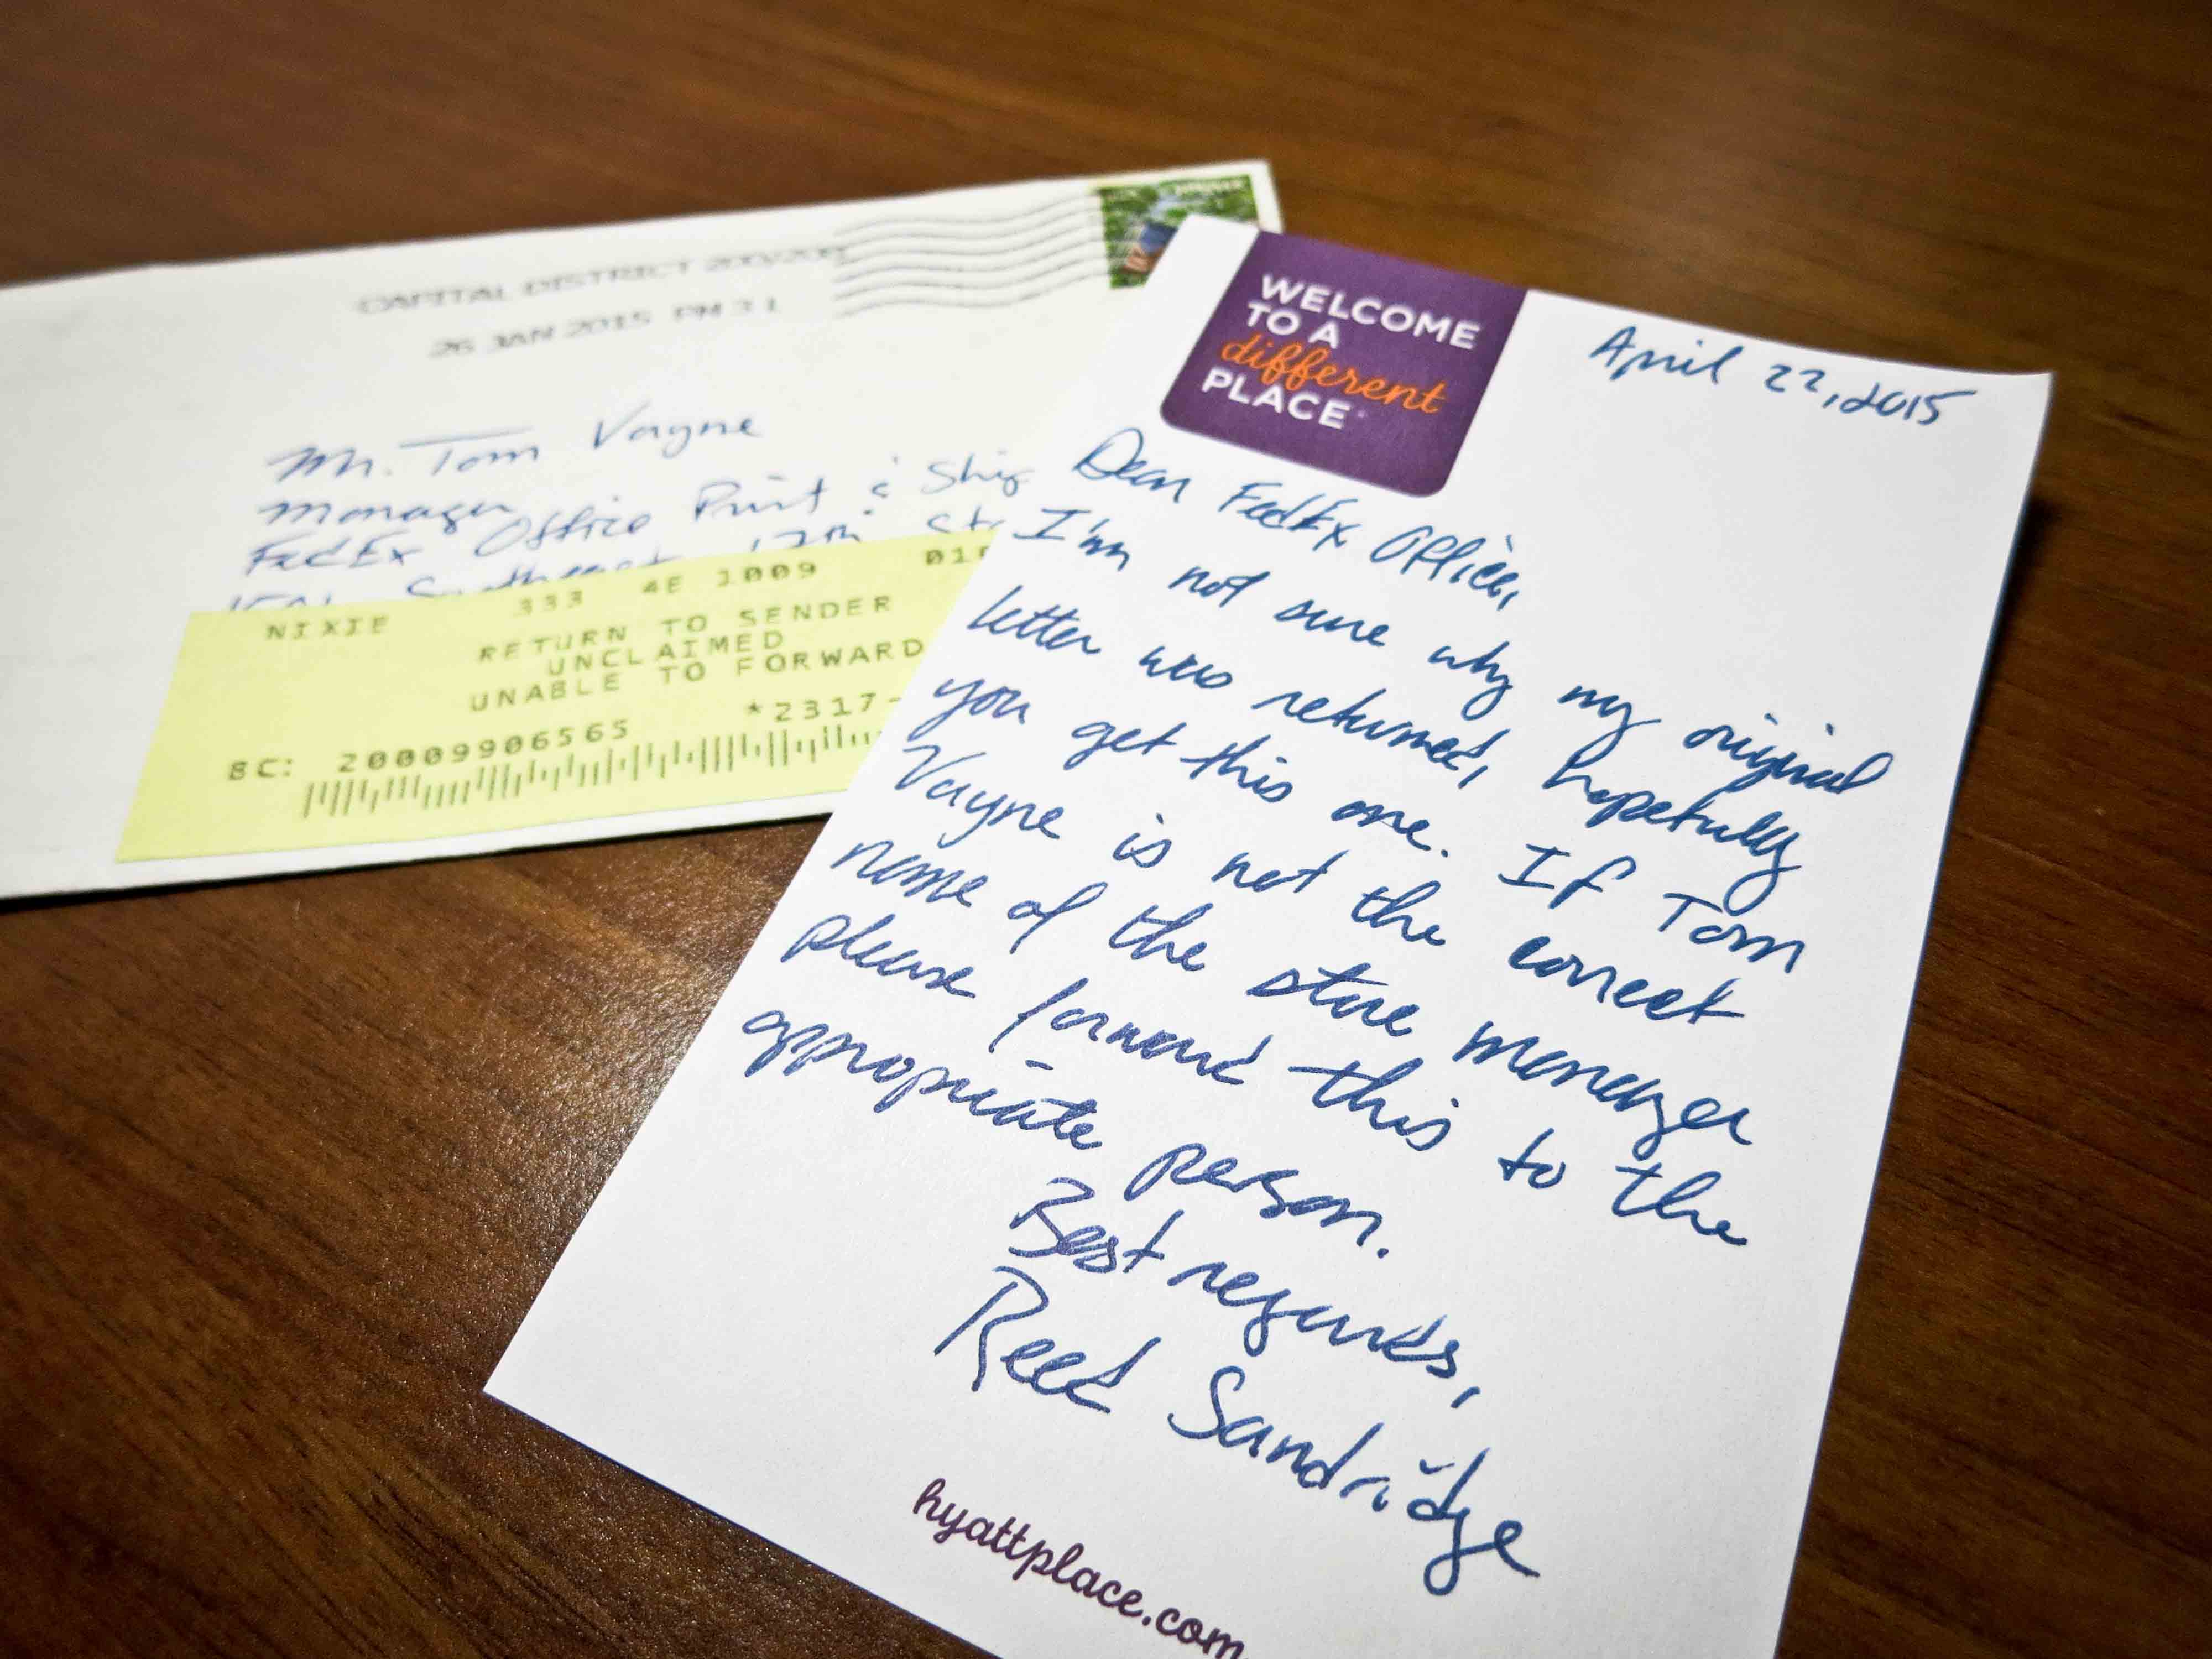 CAPITAL DISTRICT 200/208
26 JAN 2015 PM 3 L
Mr. Tom Vayne
Manager
FedEx Office Print & Ship
Southeast 17th
NIXIE 333 4E 1009
RETURN TO SENDER
UNCLAIMED
UNABLE TO FORWARD
BC: 20009906565 *2317-
WELCOME
TO A
different
PLACE
April 22, 2015
Dear FedEx Office,
I'm not sure why my original
letter was returned, hopefully
you get this one. If Tom
Vayne is not the correct
name of the store manager
please forward this to the
appropriate person.
Best regards,
Reed Sandridge
hyattplace.com